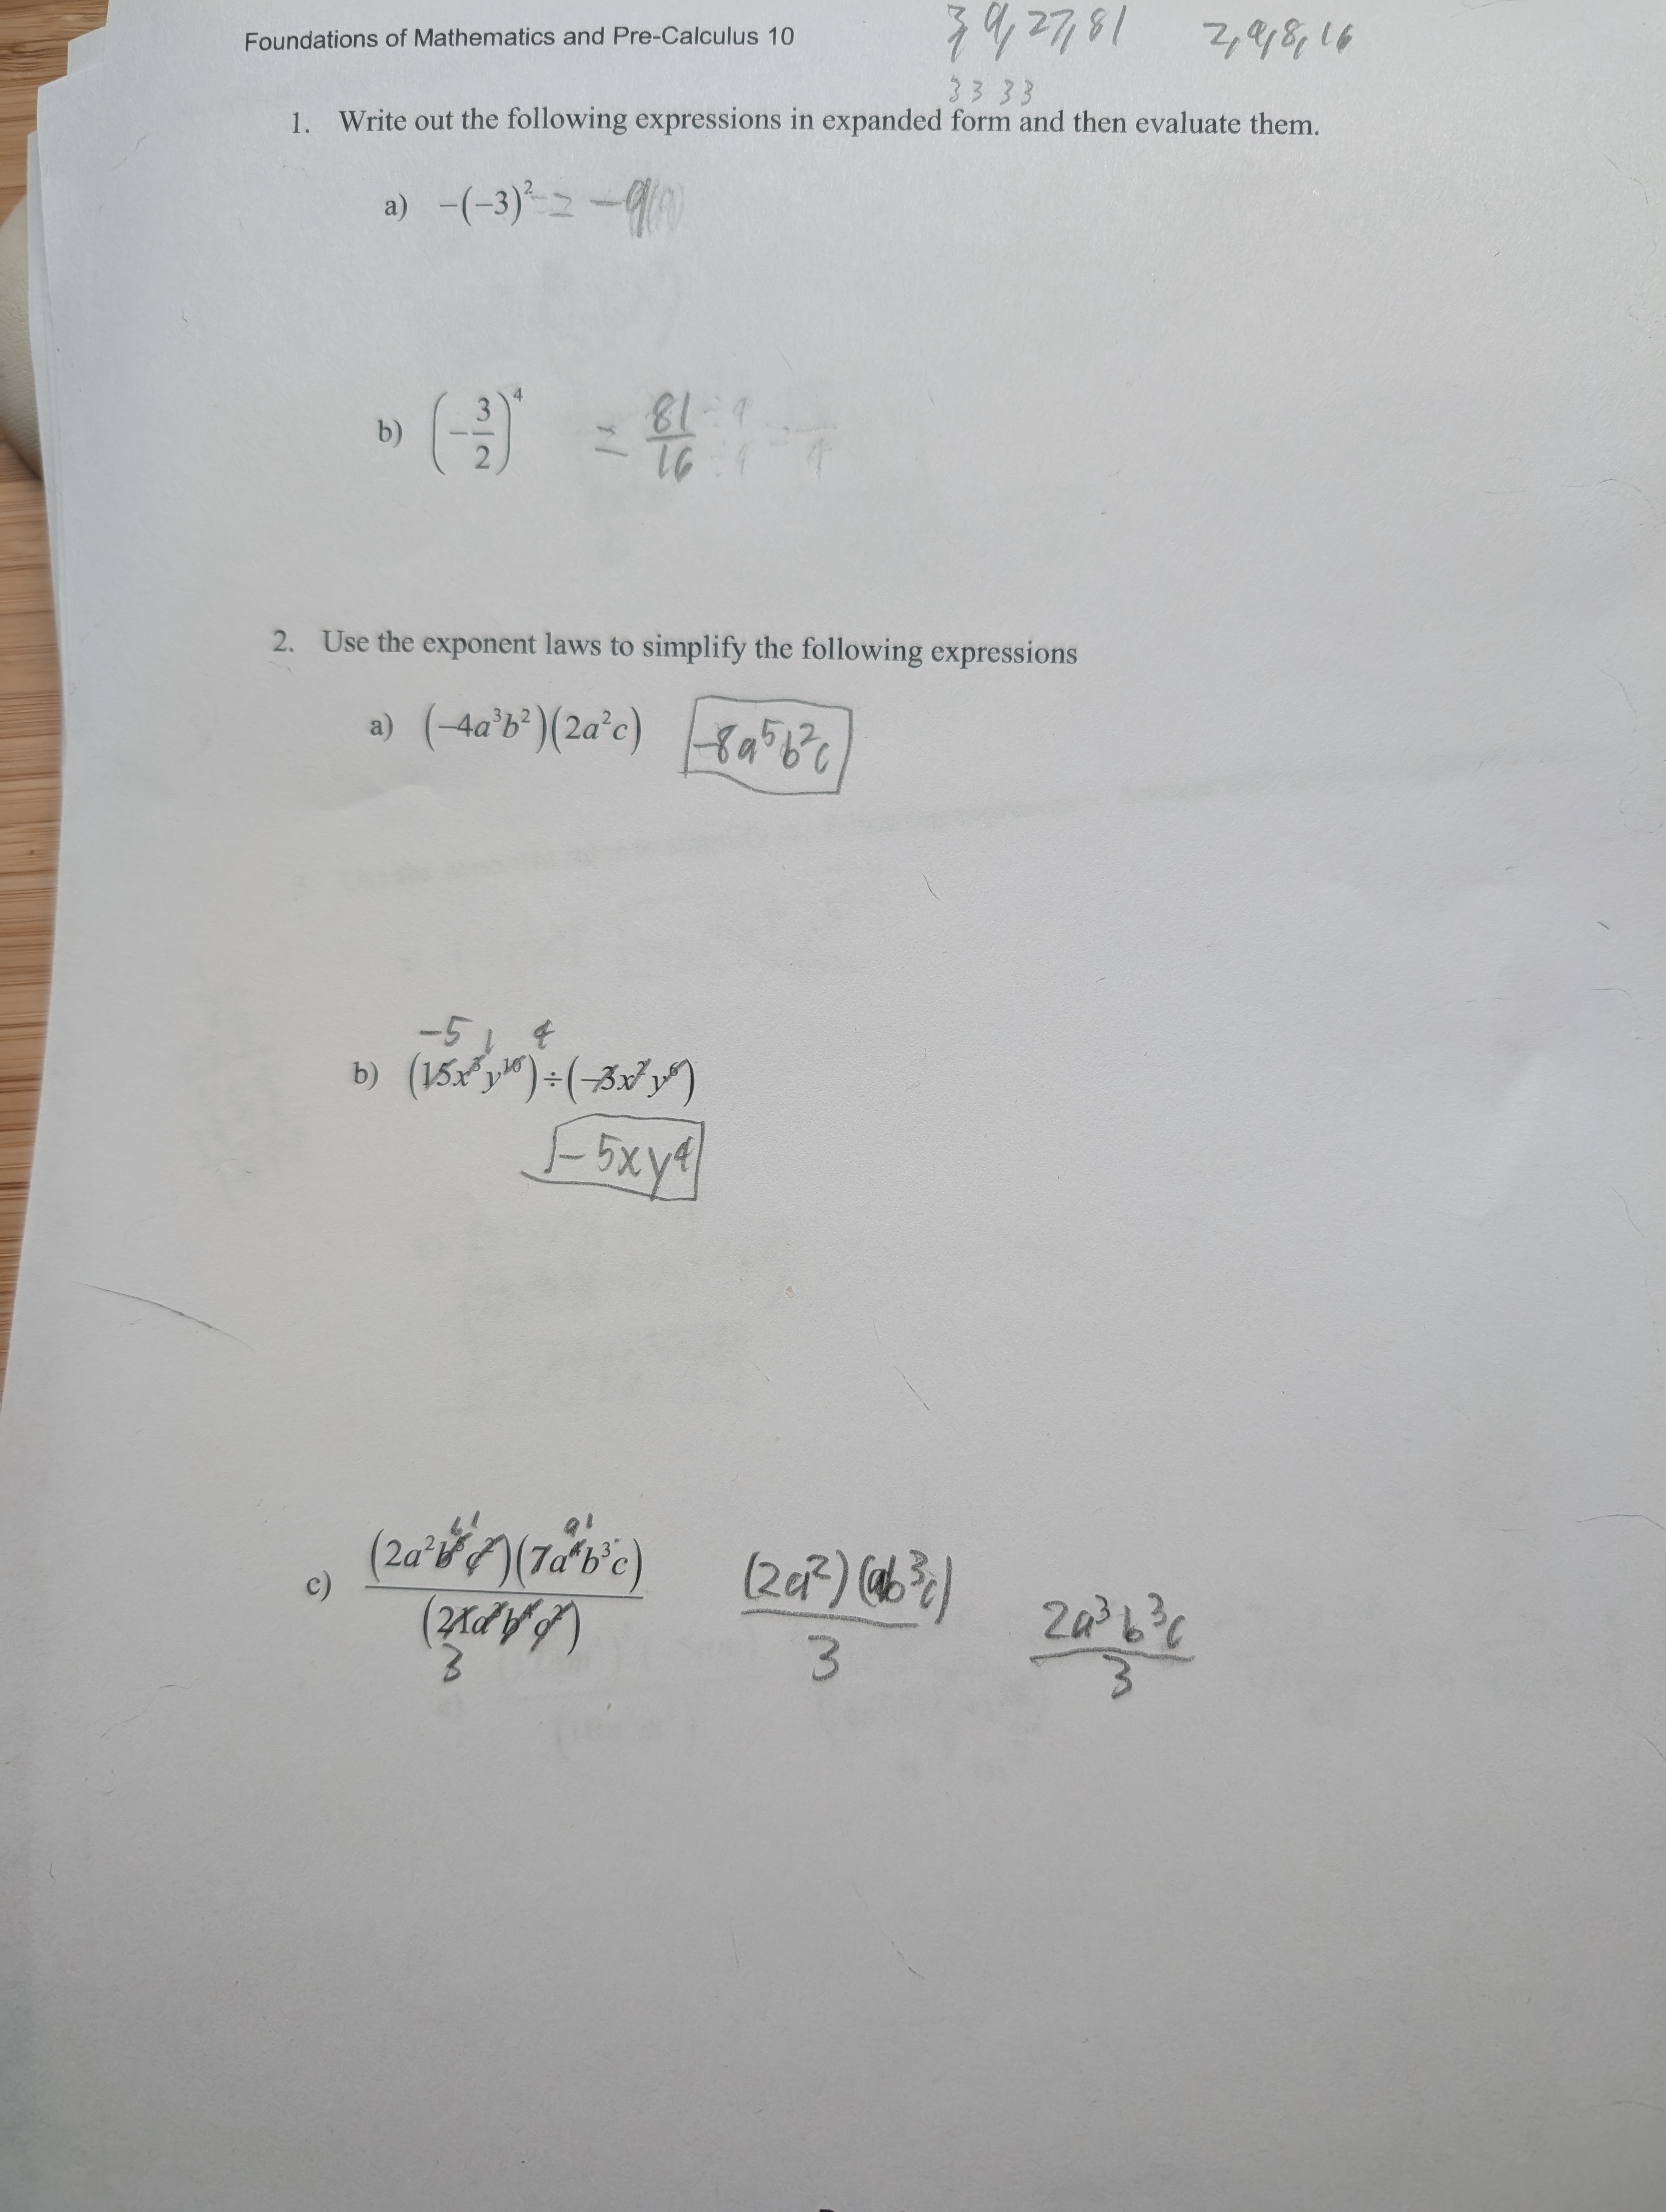 Foundations of Mathematics and Pre-Calculus 10
3, 9, 27, 81    2, 4, 8, 16
3 3 3 3
1. Write out the following expressions in expanded form and then evaluate them.
a) −(−3)² = −9
b) (−3/2)⁴ = 81/16
2. Use the exponent laws to simplify the following expressions
a) (−4a³b²)(2a²c)    −8a⁵b²c
−5 1 4
b) (15x³y¹⁰)÷(−3x²y⁶)
−5xy⁴
c) (2a²b⁵c²)(7a⁴b³c) / (21a³b⁴c²)    (2a²)(ab³c) / 3    2a³b³c / 3
3